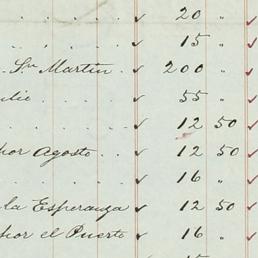 . . . . . ✓ 20 " ✓
. . . . . ✓ 15 " ✓
. Sn Martin . ✓ 200 " ✓
. . . ✓ 55 " ✓
. . . . . ✓ 12 50 ✓
por Agosto . . ✓ 12 50 ✓
. . . . . ✓ 16 " ✓
la Esperanza ✓ 12 50 ✓
por el Puerto ✓ 16 " ✓